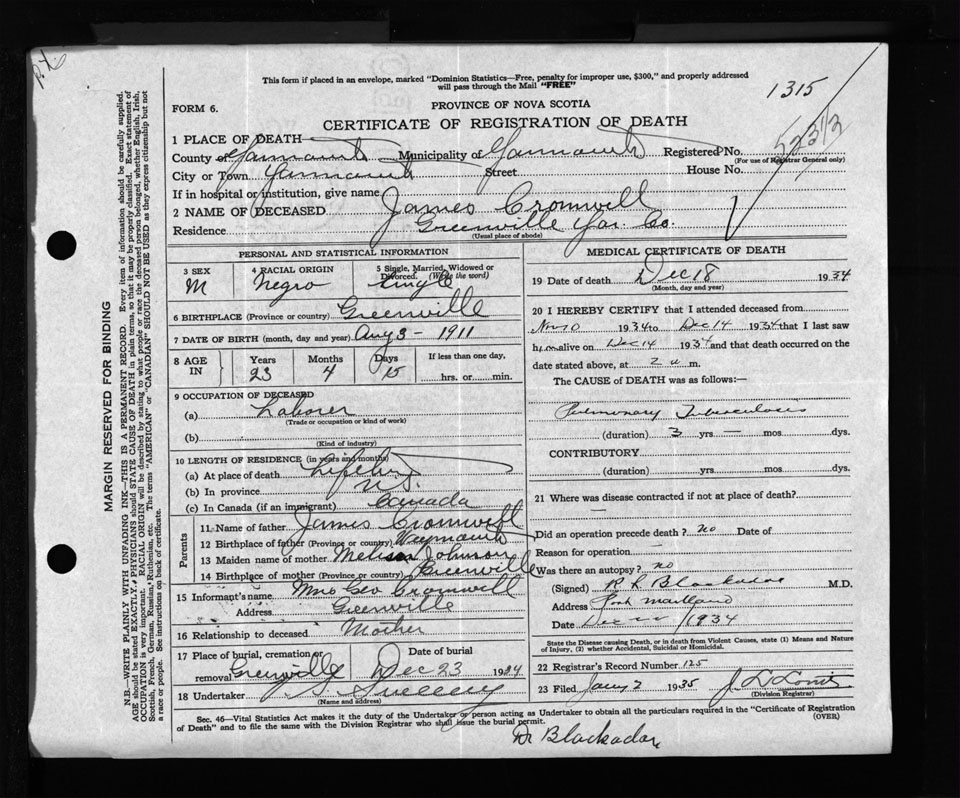 This form if placed in an envelope, marked "Dominion Statistics—Free, penalty for improper use, $300," and properly addressed
will pass through the Mail "FREE"
1315
FORM 6.
PROVINCE OF NOVA SCOTIA
CERTIFICATE OF REGISTRATION OF DEATH
1 PLACE OF DEATH
County of Yarmouth Municipality of Yarmouth Registered No.
(For use of Registrar General only)
City or Town Yarmouth Street House No.
If in hospital or institution, give name
2 NAME OF DECEASED James Cromwell
Residence Greenville Yar. Co.
(Usual place of abode)
PERSONAL AND STATISTICAL INFORMATION
3 SEX M
4 RACIAL ORIGIN Negro
5 Single, Married, Widowed or Divorced. (Write the word) Single
6 BIRTHPLACE (Province or country) Greenville
7 DATE OF BIRTH (month, day and year) Aug 3 - 1911
8 AGE IN Years 23 Months 4 Days 15 If less than one day, hrs. or min.
9 OCCUPATION OF DECEASED
(a) Laborer
(Trade or occupation or kind of work)
(b)
(Kind of industry)
10 LENGTH OF RESIDENCE (in years and months)
(a) At place of death Lifetime
(b) In province N.S.
(c) In Canada (if an immigrant) Canada
Parents
11 Name of father James Cromwell
12 Birthplace of father (Province or country) Weymouth
13 Maiden name of mother Melissa Johnson
14 Birthplace of mother (Province or country) Greenville
15 Informant's name Mrs Geo Cromwell
Address Greenville
16 Relationship to deceased Mother
17 Place of burial, cremation or removal Greenville Date of burial Dec 23 1934
18 Undertaker
(Name and address)
MEDICAL CERTIFICATE OF DEATH
19 Date of death Dec 18 1934
(Month, day and year)
20 I HEREBY CERTIFY that I attended deceased from
1934 to Dec 14 1934 that I last saw
h alive on Dec 14 1934 and that death occurred on the
date stated above, at 2 a m.
The CAUSE OF DEATH was as follows:—
Pulmonary Tuberculosis
(duration) 3 yrs — mos. dys.
CONTRIBUTORY
(duration) yrs. mos. dys.
21 Where was disease contracted if not at place of death?
—
Did an operation precede death? no Date of
Reason for operation —
Was there an autopsy? no
(Signed) Blackadar M.D.
Address Port Maitland
Date Dec 1934
State the Disease causing Death, or in death from Violent Causes, state (1) Means and Nature
of Injury, (2) whether Accidental, Suicidal or Homicidal.
22 Registrar's Record Number 125
23 Filed Jany 2 1935
(Division Registrar)
Sec. 46—Vital Statistics Act makes it the duty of the Undertaker or person acting as Undertaker to obtain all the particulars required in the "Certificate of Registration
of Death" and to file the same with the Division Registrar who shall issue the burial permit.
(OVER)
Dr Blackadar
MARGIN RESERVED FOR BINDING
N.B.—WRITE PLAINLY WITH UNFADING INK—THIS IS A PERMANENT RECORD. Every item of information should be carefully supplied.
AGE should be stated EXACTLY. PHYSICIANS should STATE CAUSE OF DEATH in plain terms, so that it may be properly classified. Exact statement of
OCCUPATION is very important. RACIAL ORIGIN will be described by stating to what people or race the deceased person belonged, whether English, Irish,
Scottish, French, German, Russian, Ruthenian, etc. The terms "AMERICAN" or "CANADIAN" SHOULD NOT BE USED as they express citizenship but not
a race or people. See instructions on back of certificate.